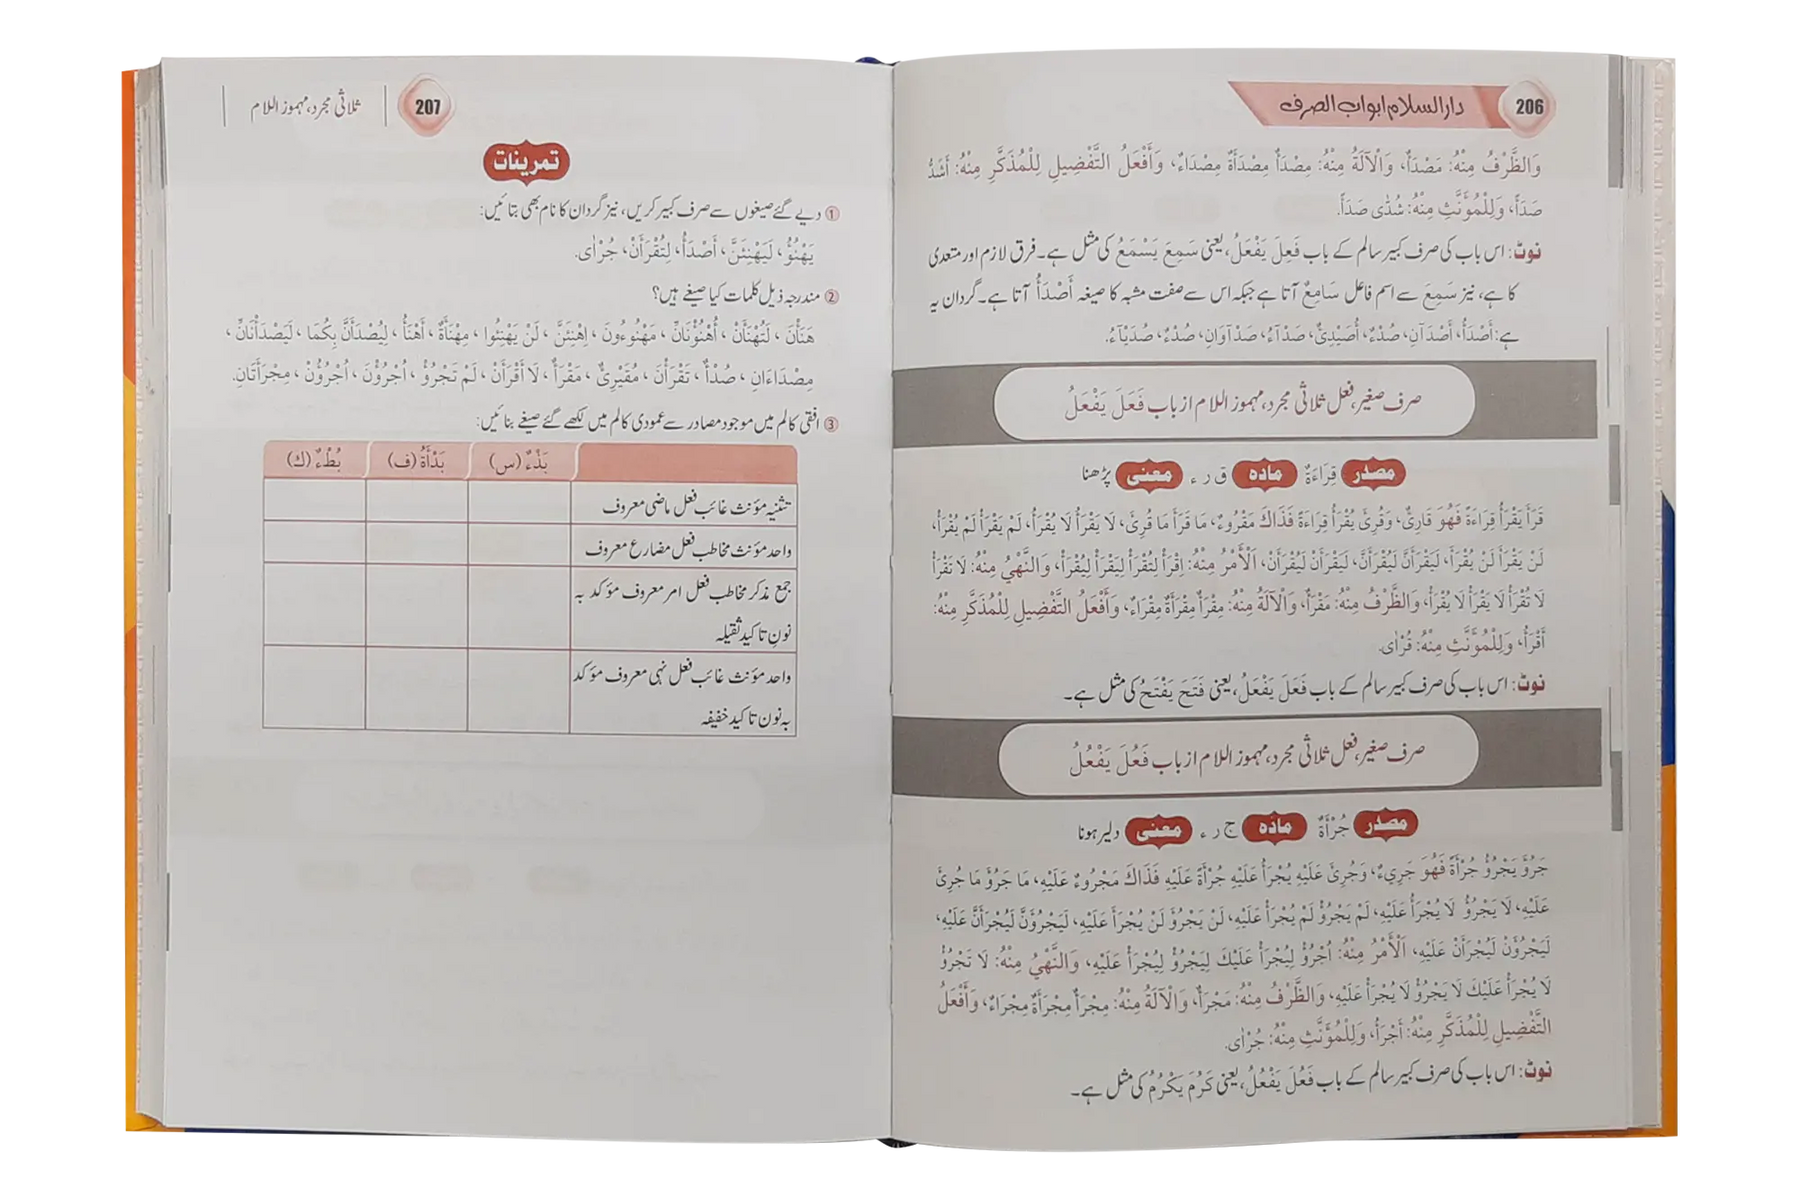 206
دارالسلام ابواب الصرف
وَالظَّرْفُ مِنْهُ: مَصْدَأٌ، وَالْآلَةُ مِنْهُ: مِصْدَأٌ مِصْدَأَةٌ مِصْدَاءٌ، وَأَفْعَلُ التَّفْضِيلِ لِلْمُذَكَّرِ مِنْهُ: أَشَدُّ
صَدَأً، وَلِلْمُؤَنَّثِ مِنْهُ: شُدّٰى صَدَأً.
نوٹ: اس باب کی صرف کبیر سالم کے باب فَعِلَ يَفْعَلُ، یعنی سَمِعَ يَسْمَعُ کی مثل ہے۔ فرق لازم اور متعدی
کا ہے، نیز سَمِعَ سے اسم فاعل سَامِعٌ آتا ہے جبکہ اس سے صفت مشبہ کا صیغہ أَصْدَأُ آتا ہے۔ گردان یہ
ہے: أَصْدَأُ، أَصْدَآنِ، صُدْءٌ، أُصَيْدِئٌ، صَدْآءُ، صَدْآوَانِ، صُدْءٌ، صُدَيْآءُ.
صرف صغیر، فعل ثلاثی مجرد، مہموز اللام از باب فَعَلَ يَفْعَلُ
مصدر قِرَاءَةٌ مادہ ق ر ء معنی پڑھنا
قَرَأَ يَقْرَأُ قِرَاءَةً فَهُوَ قَارِئٌ، وَقُرِئَ يُقْرَأُ قِرَاءَةً فَذَاكَ مَقْرُوءٌ، مَا قَرَأَ مَا قُرِئَ، لَا يَقْرَأُ لَا يُقْرَأُ، لَمْ يَقْرَأْ لَمْ يُقْرَأْ،
لَنْ يَقْرَأَ لَنْ يُقْرَأَ، لَيَقْرَأَنَّ لَيُقْرَأَنَّ، لَيَقْرَأَنْ لَيُقْرَأَنْ، اَلْأَمْرُ مِنْهُ: اِقْرَأْ لِتُقْرَأْ لِيَقْرَأْ لِيُقْرَأْ، وَالنَّهْيُ مِنْهُ: لَا تَقْرَأْ
لَا تُقْرَأْ لَا يَقْرَأْ لَا يُقْرَأْ، وَالظَّرْفُ مِنْهُ: مَقْرَأٌ، وَالْآلَةُ مِنْهُ: مِقْرَأٌ مِقْرَأَةٌ مِقْرَاءٌ، وَأَفْعَلُ التَّفْضِيلِ لِلْمُذَكَّرِ مِنْهُ:
أَقْرَأُ، وَلِلْمُؤَنَّثِ مِنْهُ: قُرْاٰى.
نوٹ: اس باب کی صرف کبیر سالم کے باب فَعَلَ يَفْعَلُ، یعنی فَتَحَ يَفْتَحُ کی مثل ہے۔
صرف صغیر، فعل ثلاثی مجرد، مہموز اللام از باب فَعُلَ يَفْعُلُ
مصدر جُرْأَةٌ مادہ ج ر ء معنی دلیر ہونا
جَرُؤَ يَجْرُؤُ جُرْأَةً فَهُوَ جَرِيءٌ، وَجُرِئَ عَلَيْهِ يُجْرَأُ عَلَيْهِ جُرْأَةً عَلَيْهِ فَذَاكَ مَجْرُوءٌ عَلَيْهِ، مَا جَرُؤَ مَا جُرِئَ
عَلَيْهِ، لَا يَجْرُؤُ لَا يُجْرَأُ عَلَيْهِ، لَمْ يَجْرُؤْ لَمْ يُجْرَأْ عَلَيْهِ، لَنْ يَجْرُؤَ لَنْ يُجْرَأَ عَلَيْهِ، لَيَجْرُؤَنَّ لَيُجْرَأَنَّ عَلَيْهِ،
لَيَجْرُؤَنْ لَيُجْرَأَنْ عَلَيْهِ، اَلْأَمْرُ مِنْهُ: اُجْرُؤْ لِيُجْرَأْ عَلَيْكَ لِيَجْرُؤْ لِيُجْرَأْ عَلَيْهِ، وَالنَّهْيُ مِنْهُ: لَا تَجْرُؤْ
لَا يُجْرَأْ عَلَيْكَ لَا يَجْرُؤْ لَا يُجْرَأْ عَلَيْهِ، وَالظَّرْفُ مِنْهُ: مَجْرَأٌ، وَالْآلَةُ مِنْهُ: مِجْرَأٌ مِجْرَأَةٌ مِجْرَاءٌ، وَأَفْعَلُ
التَّفْضِيلِ لِلْمُذَكَّرِ مِنْهُ: أَجْرَأُ، وَلِلْمُؤَنَّثِ مِنْهُ: جُرْاٰى.
نوٹ: اس باب کی صرف کبیر سالم کے باب فَعُلَ يَفْعُلُ، یعنی كَرُمَ يَكْرُمُ کی مثل ہے۔
207
ثلاثی مجرد، مہموز اللام
تمرینات
① دیے گئے صیغوں سے صرف کبیر کریں، نیز گردان کا نام بھی بتائیں:
يَهْنُؤُ، لَيَهْنِئَنَّ، أَصْدَأُ، لِتُقْرَأَنْ، جُرْاٰى.
② مندرجہ ذیل کلمات کیا صیغے ہیں؟
هَنَأْنَ، لَتُهْنَأَنْ، أُهْنُؤْنَانِّ، مَهْنُوءُونَ، اِهْنِئَنَّ، لَنْ يَهْنِئُوا، مِهْنَأَةٌ، أَهْنَأُ، لِيُصْدَأَنَّ بِكُمَا، لَيَصْدَأْنَانِّ،
مِصْدَاءَانِ، صُدْأٌ، تَقْرَأْنَ، مُقَيْرِئٌ، مَقْرَأٌ، لَا أَقْرَأَنْ، لَمْ تَجْرُؤْ، اُجْرُؤْنَ، اُجْرُؤُنْ، مِجْرَأَتَانِ.
③ افقی کالم میں موجود مصادر سے عمودی کالم میں لکھے گئے صیغے بتائیں:
بَذْءٌ (س) بَدْأَةٌ (ف) بُطْءٌ (ك)
تثنیہ مؤنث غائب فعل ماضی معروف
واحد مؤنث مخاطب فعل مضارع معروف
جمع مذکر مخاطب فعل امر معروف مؤکد بہ
نونِ تاکید ثقیلہ
واحد مؤنث غائب فعل نہی معروف مؤکد
بہ نون تاکید خفیفہ